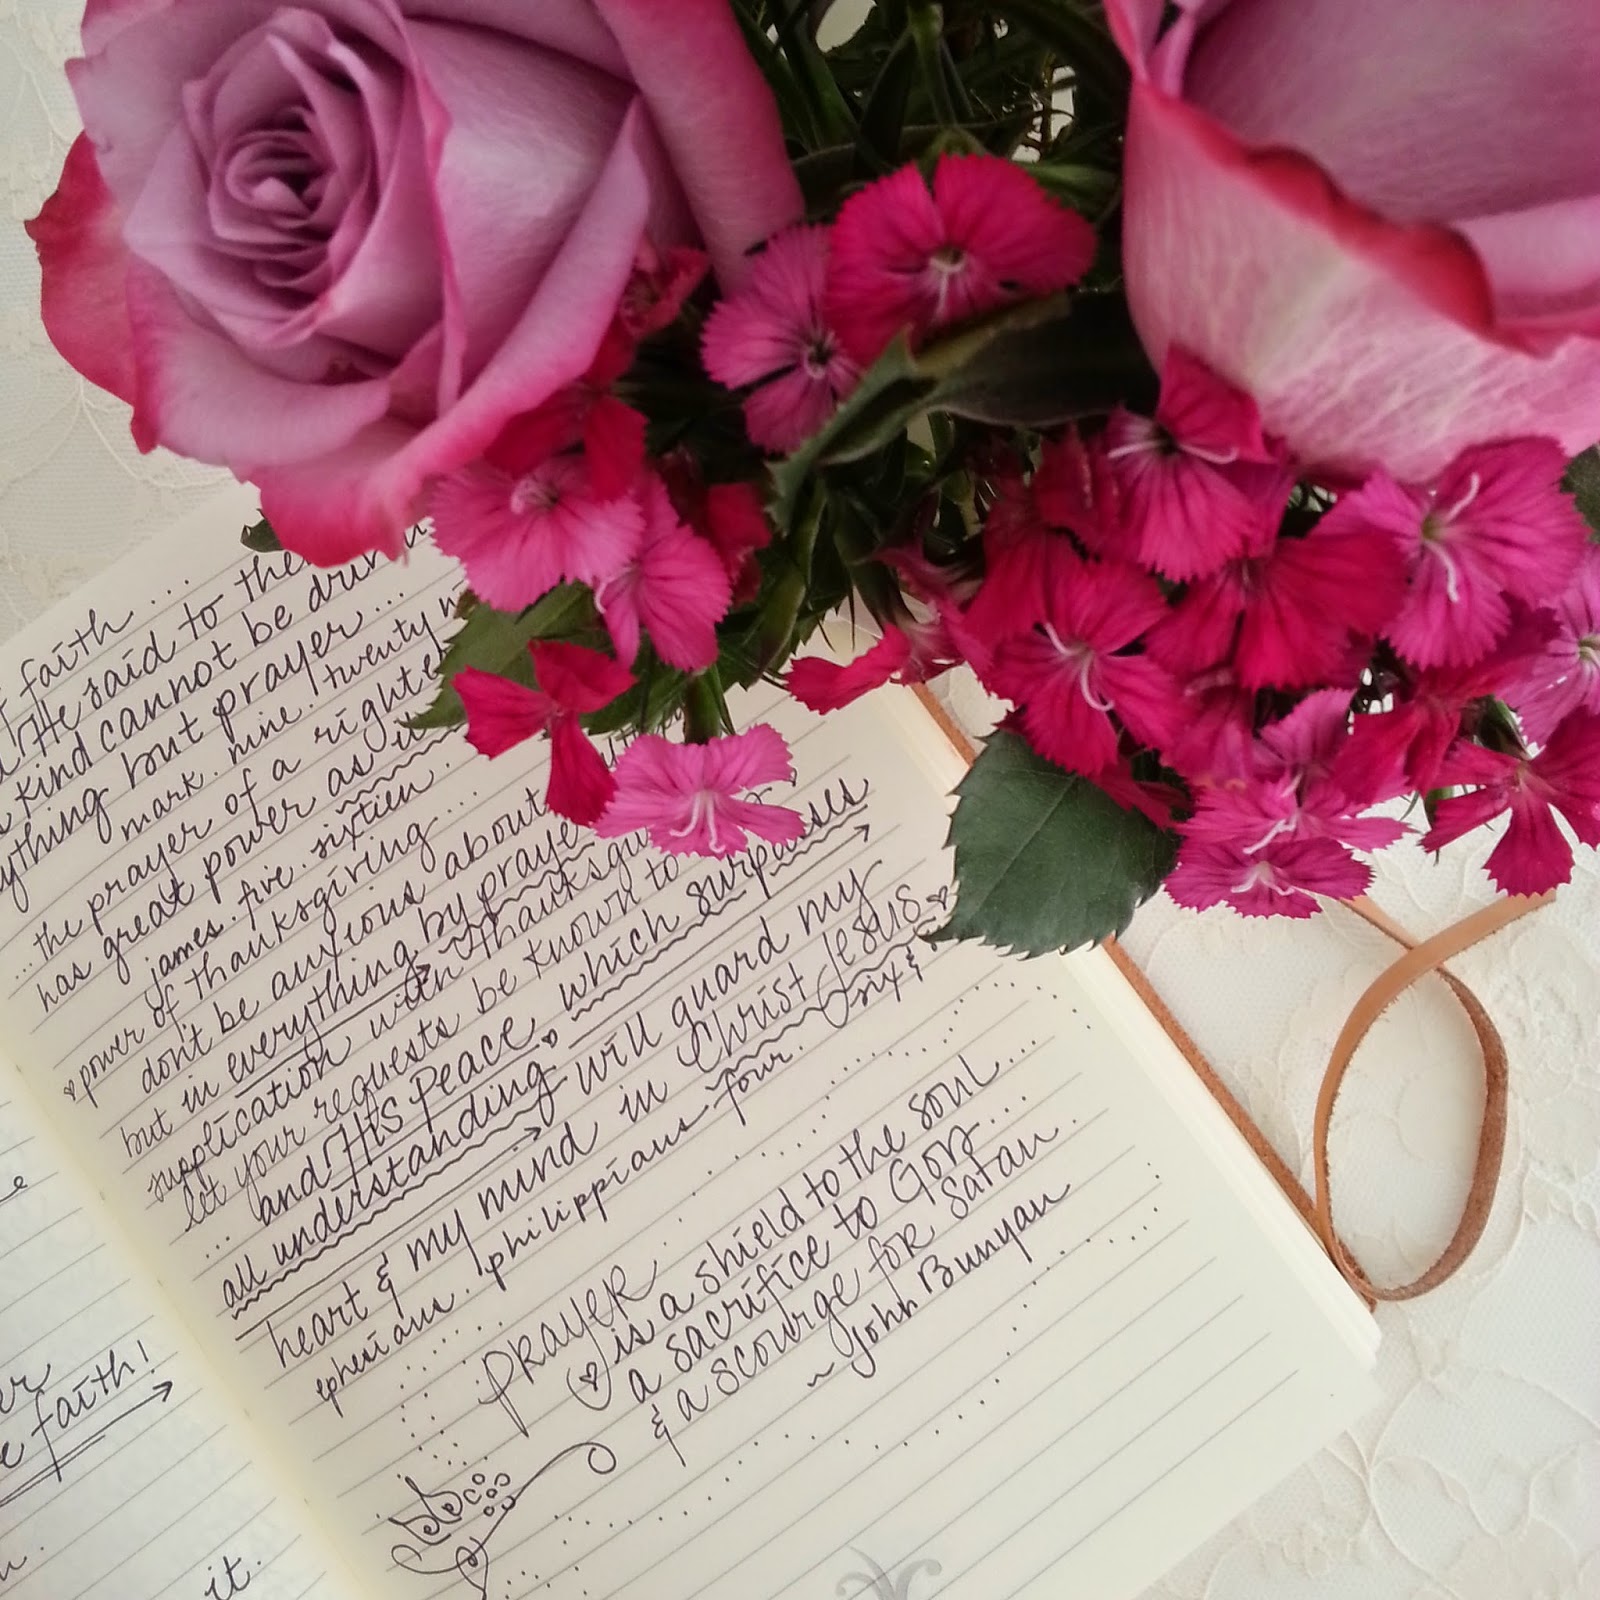 faith...
He said to the
kind cannot be driv
ything but prayer...
mark. nine. twenty n
...the prayer of a righte
has great power as it
james. five. sixteen.
power of thanksgiving....
don't be anxious about
but in everything by praye
supplication with thanksgiving,
let your requests be known to
... and His Peace, which surpasses
all understanding will guard my
heart & my mind in Christ Jesus
ephesians. philippians four. six &
PRAYER
is a shield to the soul....
a sacrifice to GOD...
& a scourge for satan.
~ John Bunyan
er
e faith!
it.